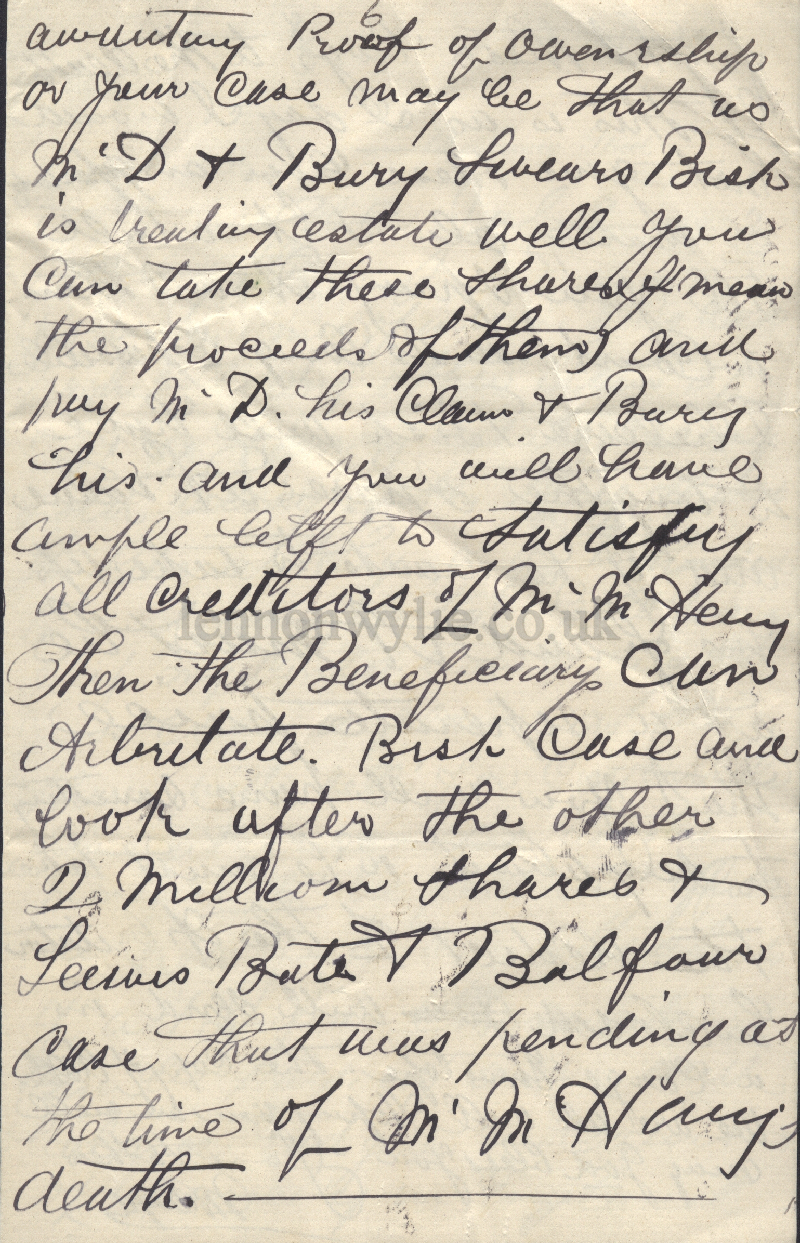 6
awaiting Proof of Ownership
or your Case may be that as
Mr D + Bury Swears Bish
is treating estate well you
Can take these Shares (I mean
the proceeds of them) and
pay Mr D. his Claim + Bury
his. and you will have
ample left to Satisfy
all Creditors of Mr McHenry
Then the Beneficiary Can
Arbritate. Bish Case and
look after the other
2 Million Shares +
Bate + Balfour
Case that was pending at
the time of Mr McHenry's
death.
lennonwylie.co.uk